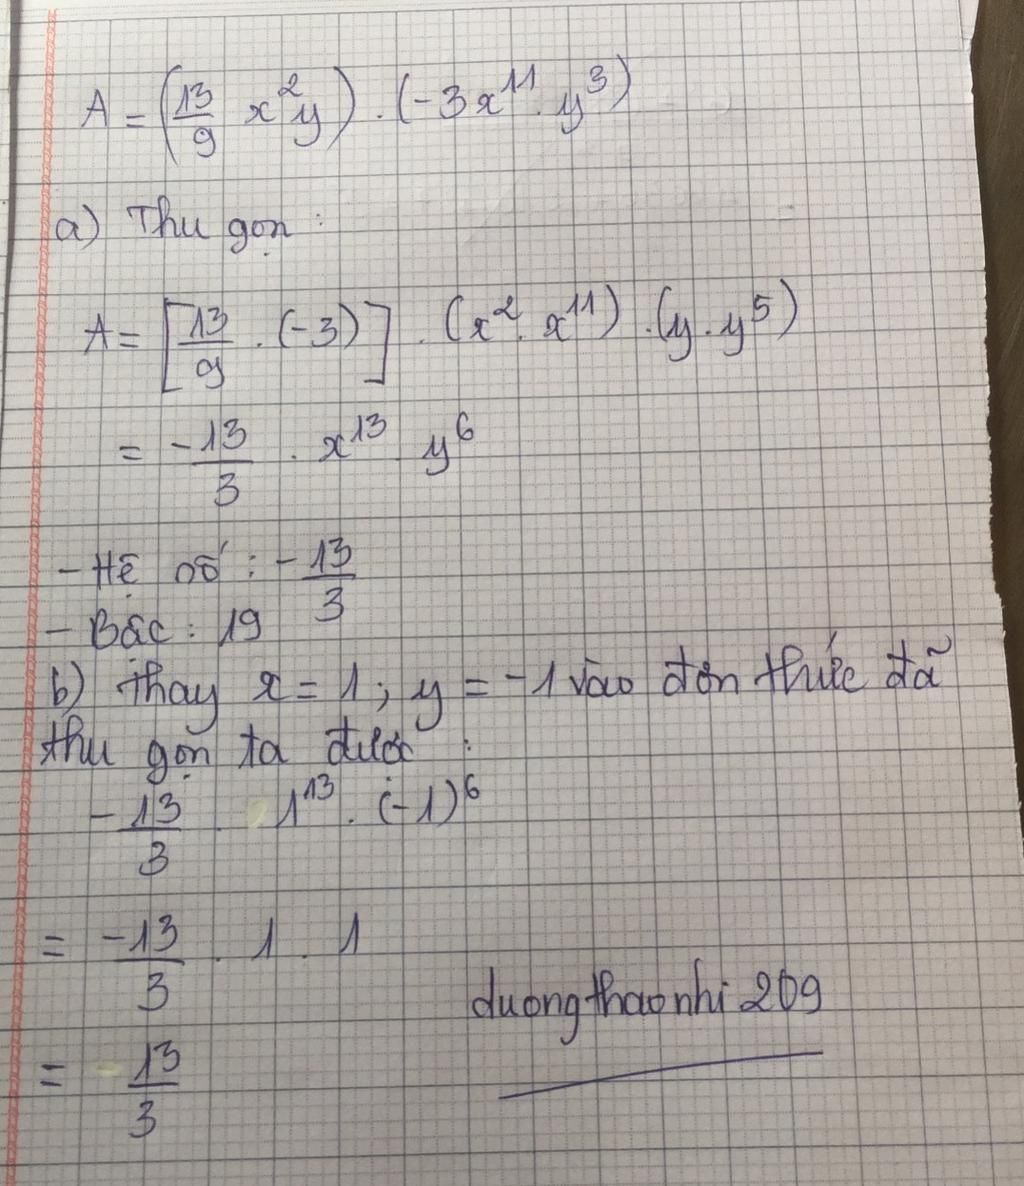 A = (13/9 x²y) . (-3x¹¹ . y³)
a) Thu gọn :
A = [13/9 . (-3)] . (x² . x¹¹) . (y . y⁵)
= -13/3 . x¹³ . y⁶
- Hệ số : -13/3
- Bậc : 19
b) Thay x = 1 ; y = -1 vào đơn thức đã
thu gọn ta được :
-13/3 . 1¹³ . (-1)⁶
= -13/3 . 1 . 1
= 13/3
duongthaonhi 209